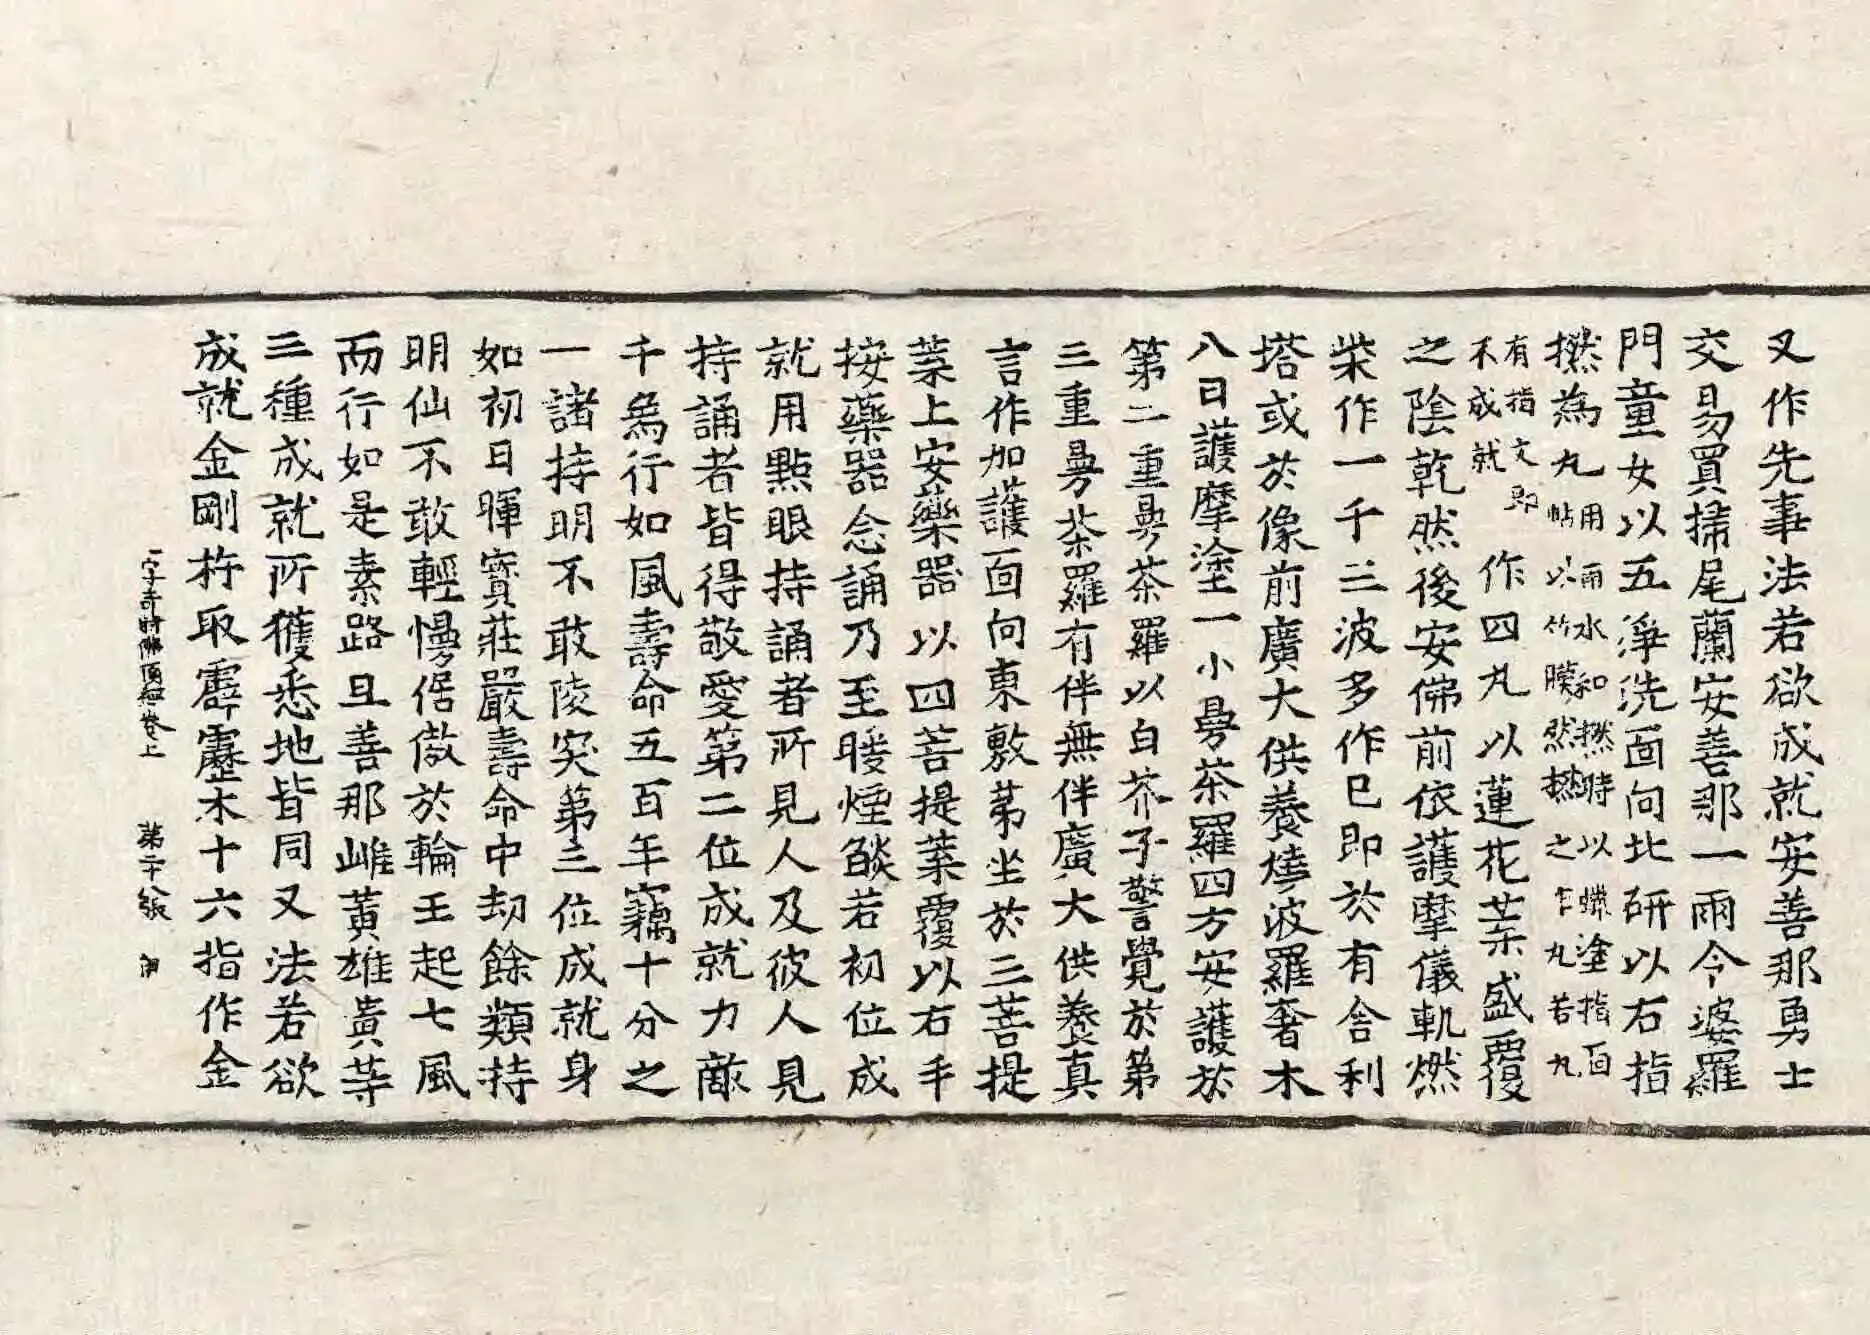 又作先事法若欲成就安善那勇士
交易買掃尾蘭安善那一兩令婆羅
門童女以五淨洗面向北研以右指
撚為丸用雨水和撚時以蠟塗指面
帖以竹膜然撚之乍丸若丸
有指文即
不成就作四丸以蓮花葉盛覆
之陰乾然後安佛前依護摩儀軌燃
柴作一千三波多作已即於有舍利
塔或於像前廣大供養燒波羅奢木
八日護摩塗一小曼荼羅四方安護於
第二重曼荼羅以白芥子警覺於第
三重曼荼羅有伴無伴廣大供養真
言作加護面向東敷茅坐於三菩提
葉上安藥器以四菩提葉覆以右手
按藥器念誦乃至暖煙焰若初位成
就用點眼持誦者所見人及彼人見
持誦者皆得敬愛第二位成就力敵
千象行如風壽命五百年竊十分之
一諸持明不敢陵突第三位成就身
如初日暉寶莊嚴壽命中劫餘類持
明仙不敢輕慢倨傲於輪王起七風
而行如是素路旦善那雌黃雄黃等
三種成就所獲悉地皆同又法若欲
成就金剛杵取霹靂木十六指作金
一字奇特佛頂經卷上 第二十八張